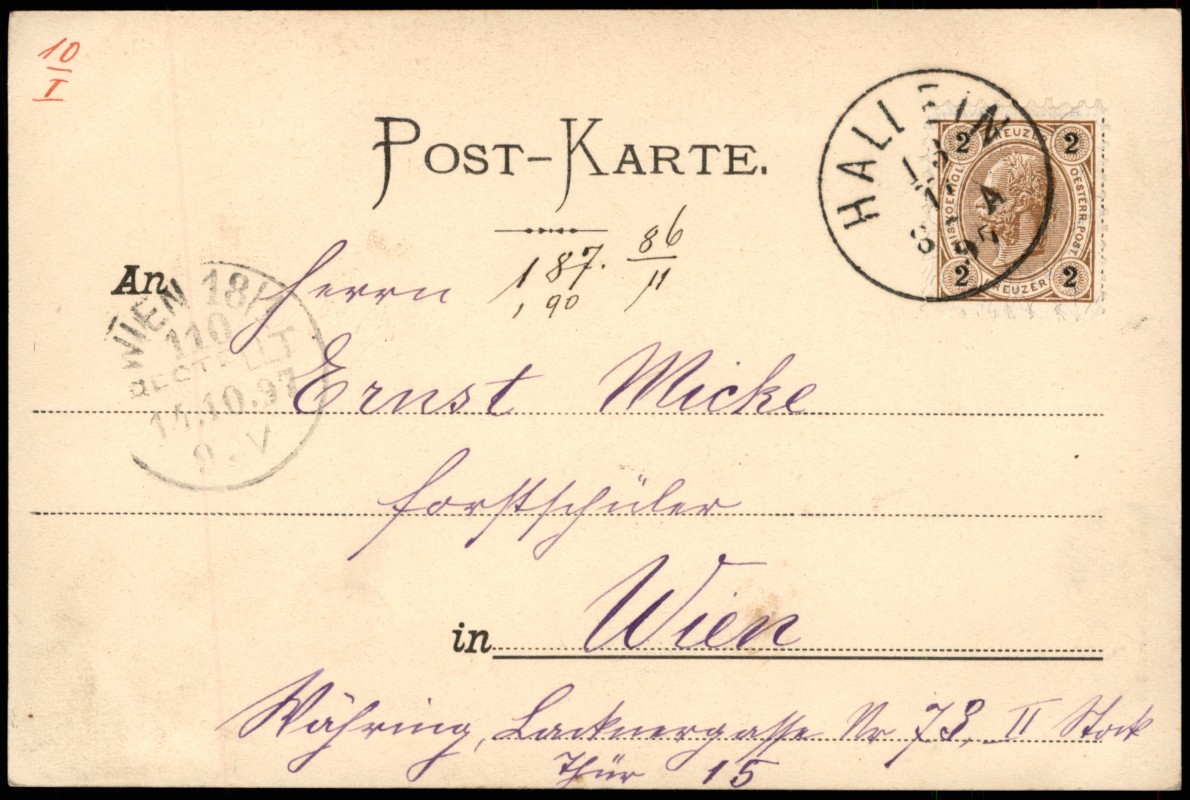 10
I
POST-KARTE.
HALLEIN
A
2 KREUZER 2
OESTERR. POST
2 KREUZER 2
187. 86
11
, 90
An Herrn
WIEN 18/1
110
BESTELLT
14.10.97
9. V
Ernst Micke
Forstschüler
in Wien
Währing, Lacknergasse Nr 73, II Stock
Thür 15